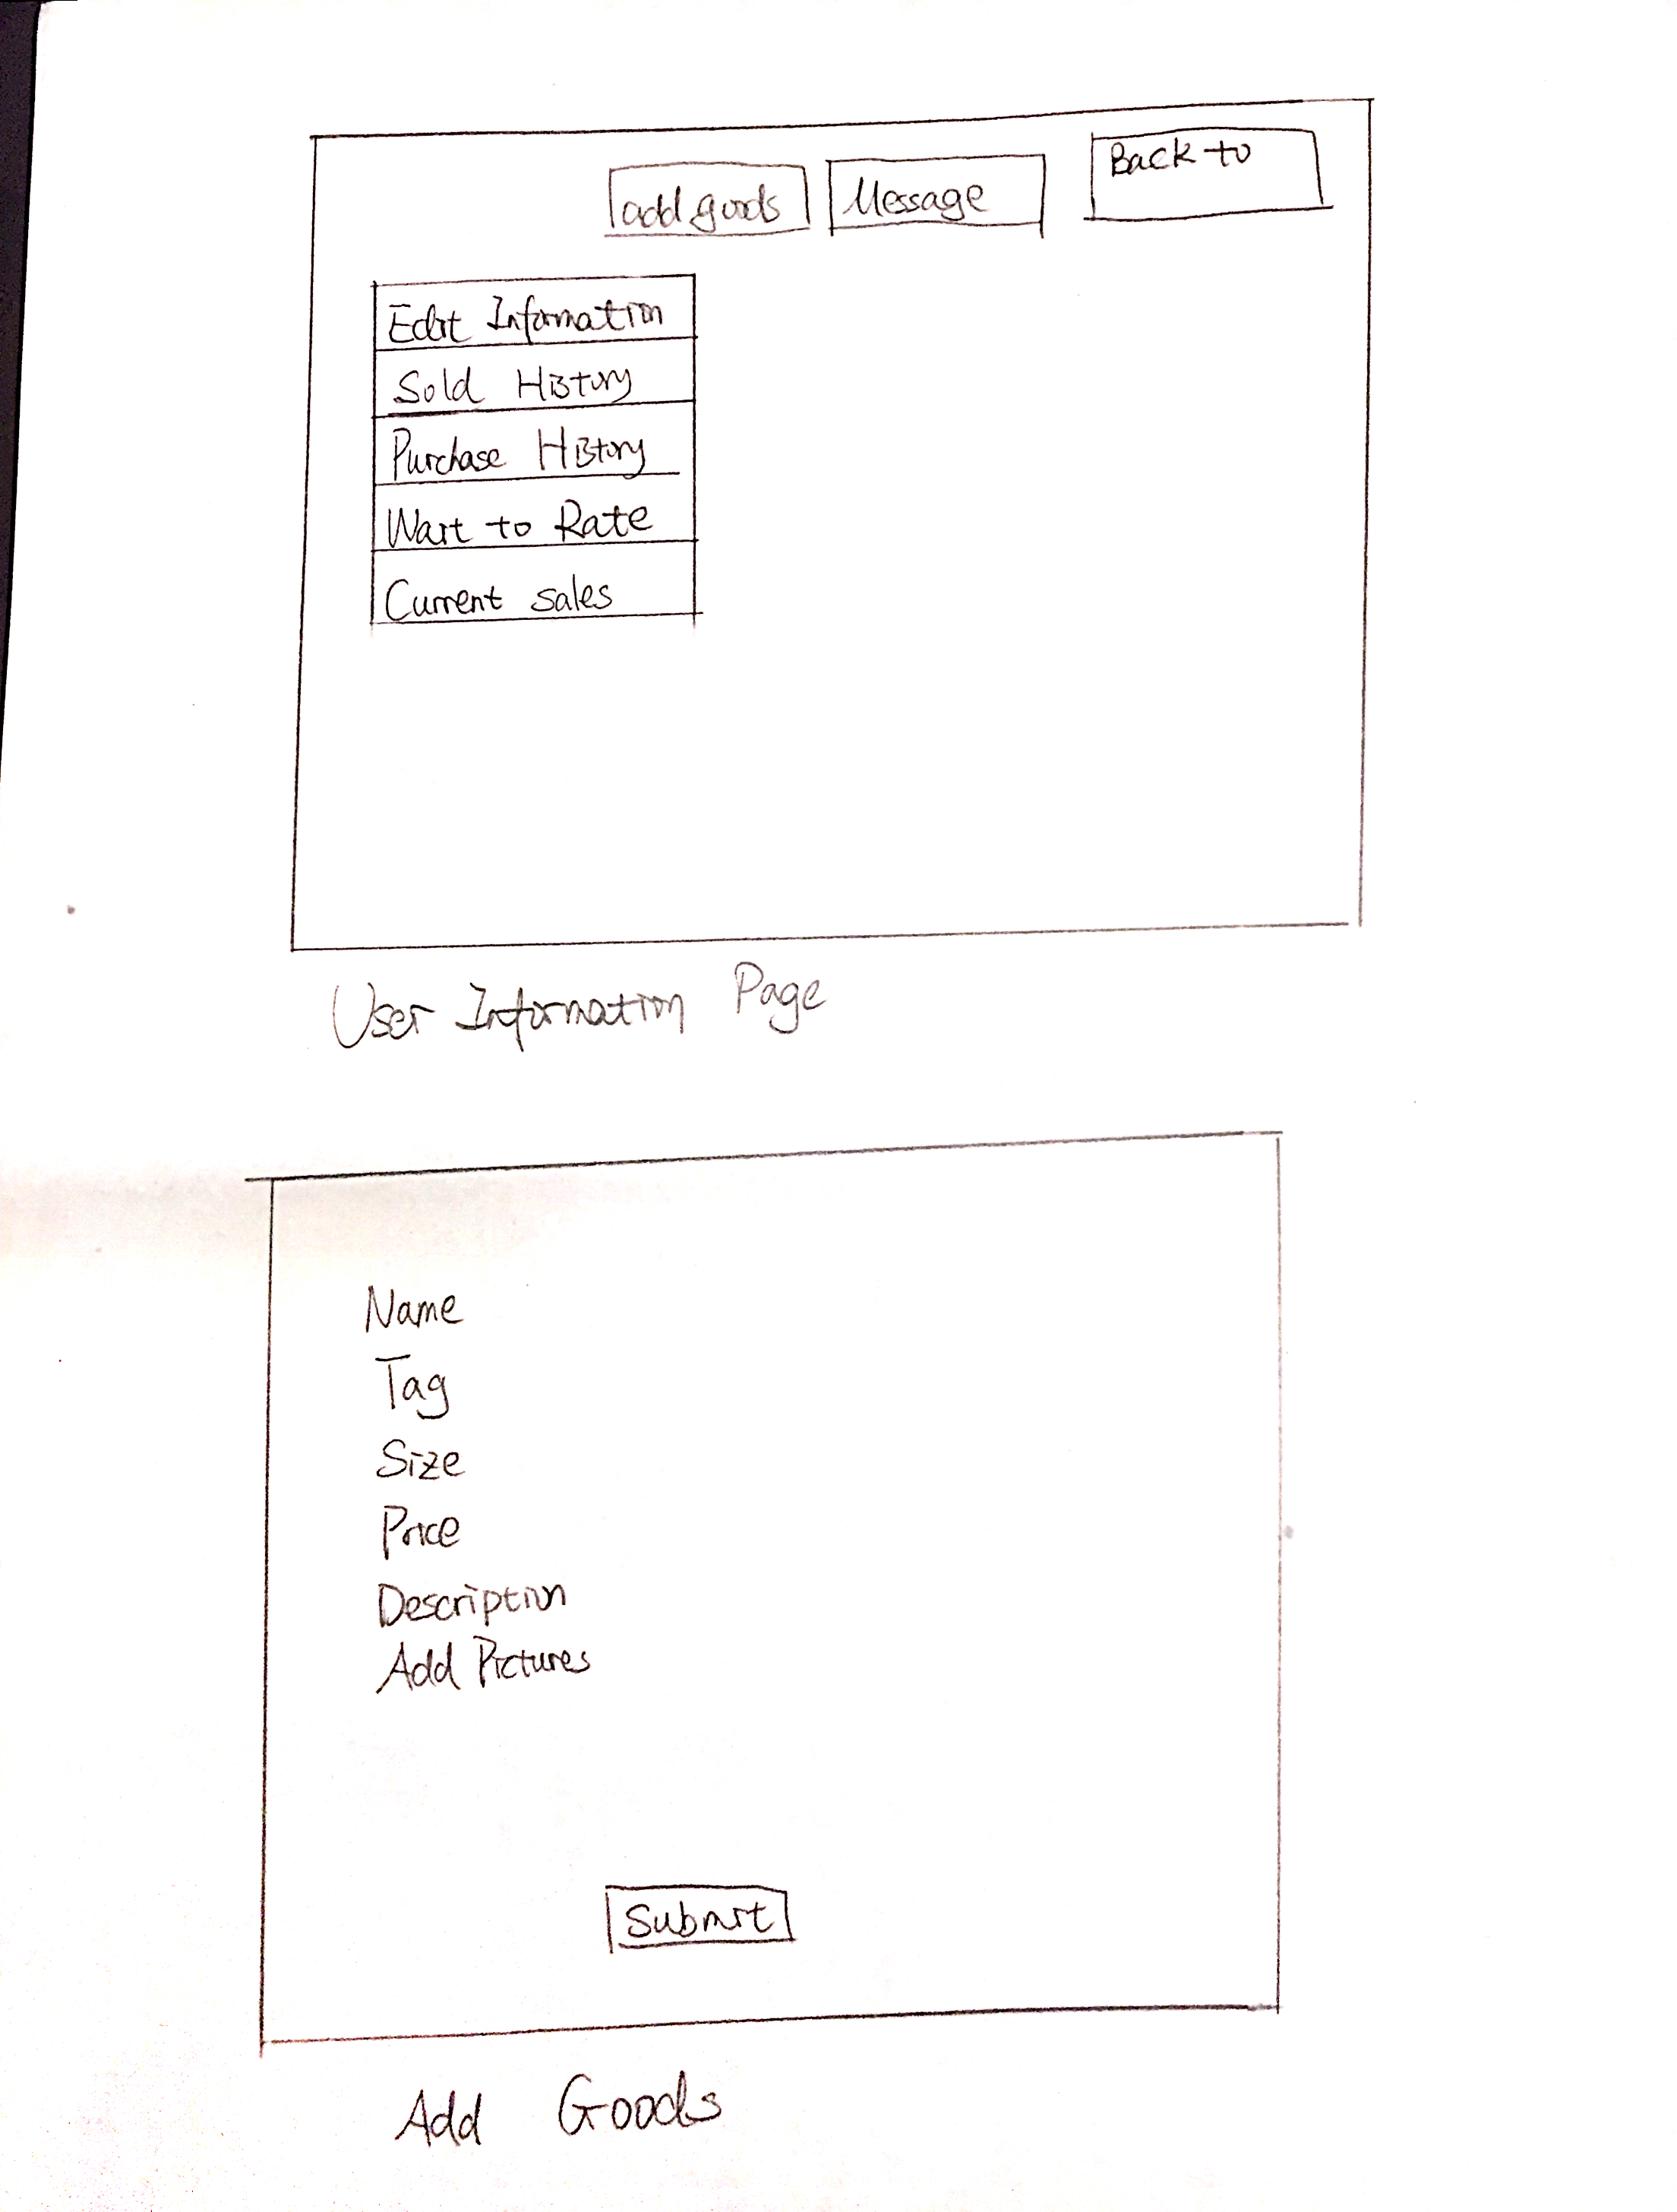 add goods Message Back to
Edit Information
Sold History
Purchase History
Wait to Rate
Current sales
User Information Page
Name
Tag
Size
Price
Description
Add Pictures
Submit
Add Goods